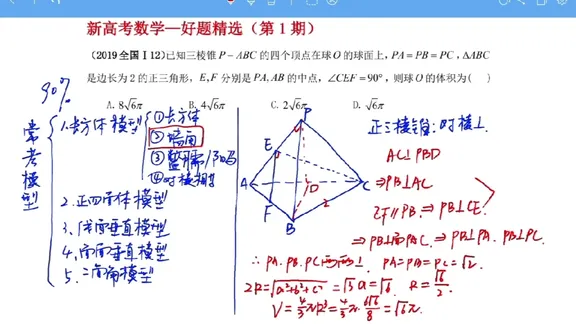 新高考数学—好题精选（第1期）
（2019全国Ⅰ12）已知三棱锥P－ABC的四个顶点在球O的球面上，PA＝PB＝PC，△ABC
是边长为2的正三角形，E,F分别是PA,AB的中点，∠CEF＝90°，则球O的体积为(　)
A. 8√6π　B. 4√6π　C. 2√6π　D. √6π
90%
常考模型
1.长方体模型
①长方体
②墙角
③鳖臑/阳马
④对棱相等
2.正四面体模型
3.线面垂直模型
4.面面垂直模型
5.二面角模型
P
E
A
D
C
F
B
2
正三棱锥：对棱⊥
AC⊥PBD
⇒PB⊥AC
EF∥PB ⇒ PB⊥CE
⇒PB⊥面PAC ⇒ PB⊥PA. PB⊥PC
∴ PA. PB. PC两两⊥ PA=PB=PC=√2.
2R=√(a²+b²+c²)=√3a=√6 R=√6/2.
V=4/3πR³=4/3π·6√6/8=√6π.